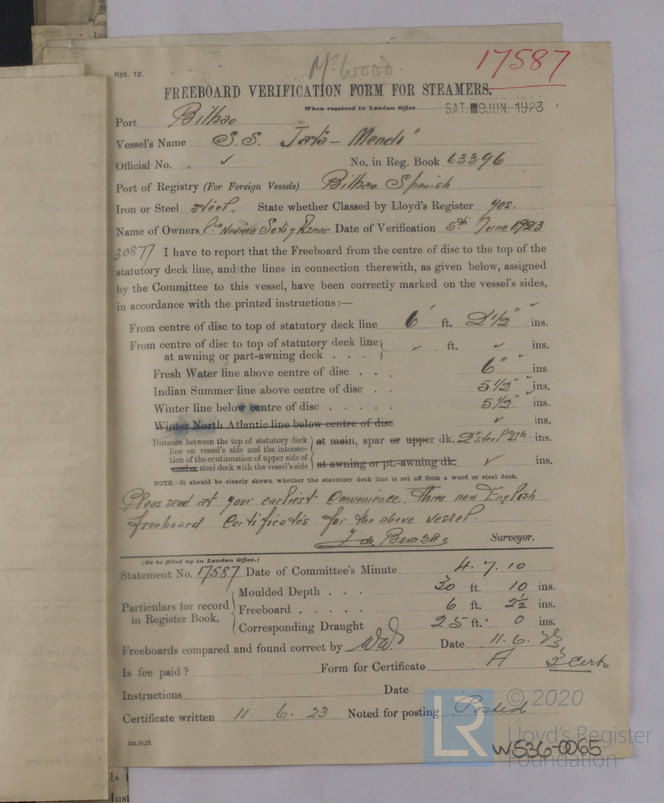 Rpt. 12.
Mc Wood
17587
FREEBOARD VERIFICATION FORM FOR STEAMERS.
When received in London Office SAT. 9 JUN. 1923
Port Bilbao
Vessel's Name S.S. "Jata-Mendi"
Official No. ✓ No. in Reg. Book 63396
Port of Registry (For Foreign Vessels) Bilbao Spanish
Iron or Steel Steel. State whether Classed by Lloyd's Register yes.
Name of Owners Cia Naviera Sota y Aznar Date of Verification 5th June 1923
30877 I have to report that the Freeboard from the centre of disc to the top of the
statutory deck line, and the lines in connection therewith, as given below, assigned
by the Committee to this vessel, have been correctly marked on the vessel's sides,
in accordance with the printed instructions:—
From centre of disc to top of statutory deck line 6' ft. 2 1/2" ins.
From centre of disc to top of statutory deck line
at awning or part-awning deck . . . ✓ ft. ✓ ins.
Fresh Water line above centre of disc . . . 6" ins
Indian Summer line above centre of disc . . . 5 1/2" ins.
Winter line below centre of disc . . . . . . 5 1/2" ins.
Winter North Atlantic line below centre of disc ✓ ins.
Distance between the top of statutory deck
line on vessel's side and the intersec-
tion of the continuation of upper side of
wood or steel deck with the vessel's side
at main, spar or upper dk. 2" ins.
at awning or pt.-awning dk. ✓ ins.
NOTE.—It should be clearly shown whether the statutory deck line is set off from a wood or steel deck.
Pleas send at your earliest convenience three new English
freeboard certificates for the above vessel.
Surveyor.
(To be filled up in London Office.)
Statement No. 17587 Date of Committee's Minute 4.7.10
Particulars for record
in Register Book.
Moulded Depth . . . . 30 ft. 10 ins.
Freeboard . . . . 6 ft. 2 1/2 ins.
Corresponding Draught 25 ft. 0 ins.
Freeboards compared and found correct by Date 11.6.23
Is fee paid? Form for Certificate A 3 Certs
Instructions Date
Certificate written 11. 6. 23 Noted for posting Posted
© 2020
LR
Lloyd's Register
Foundation
W536-0065